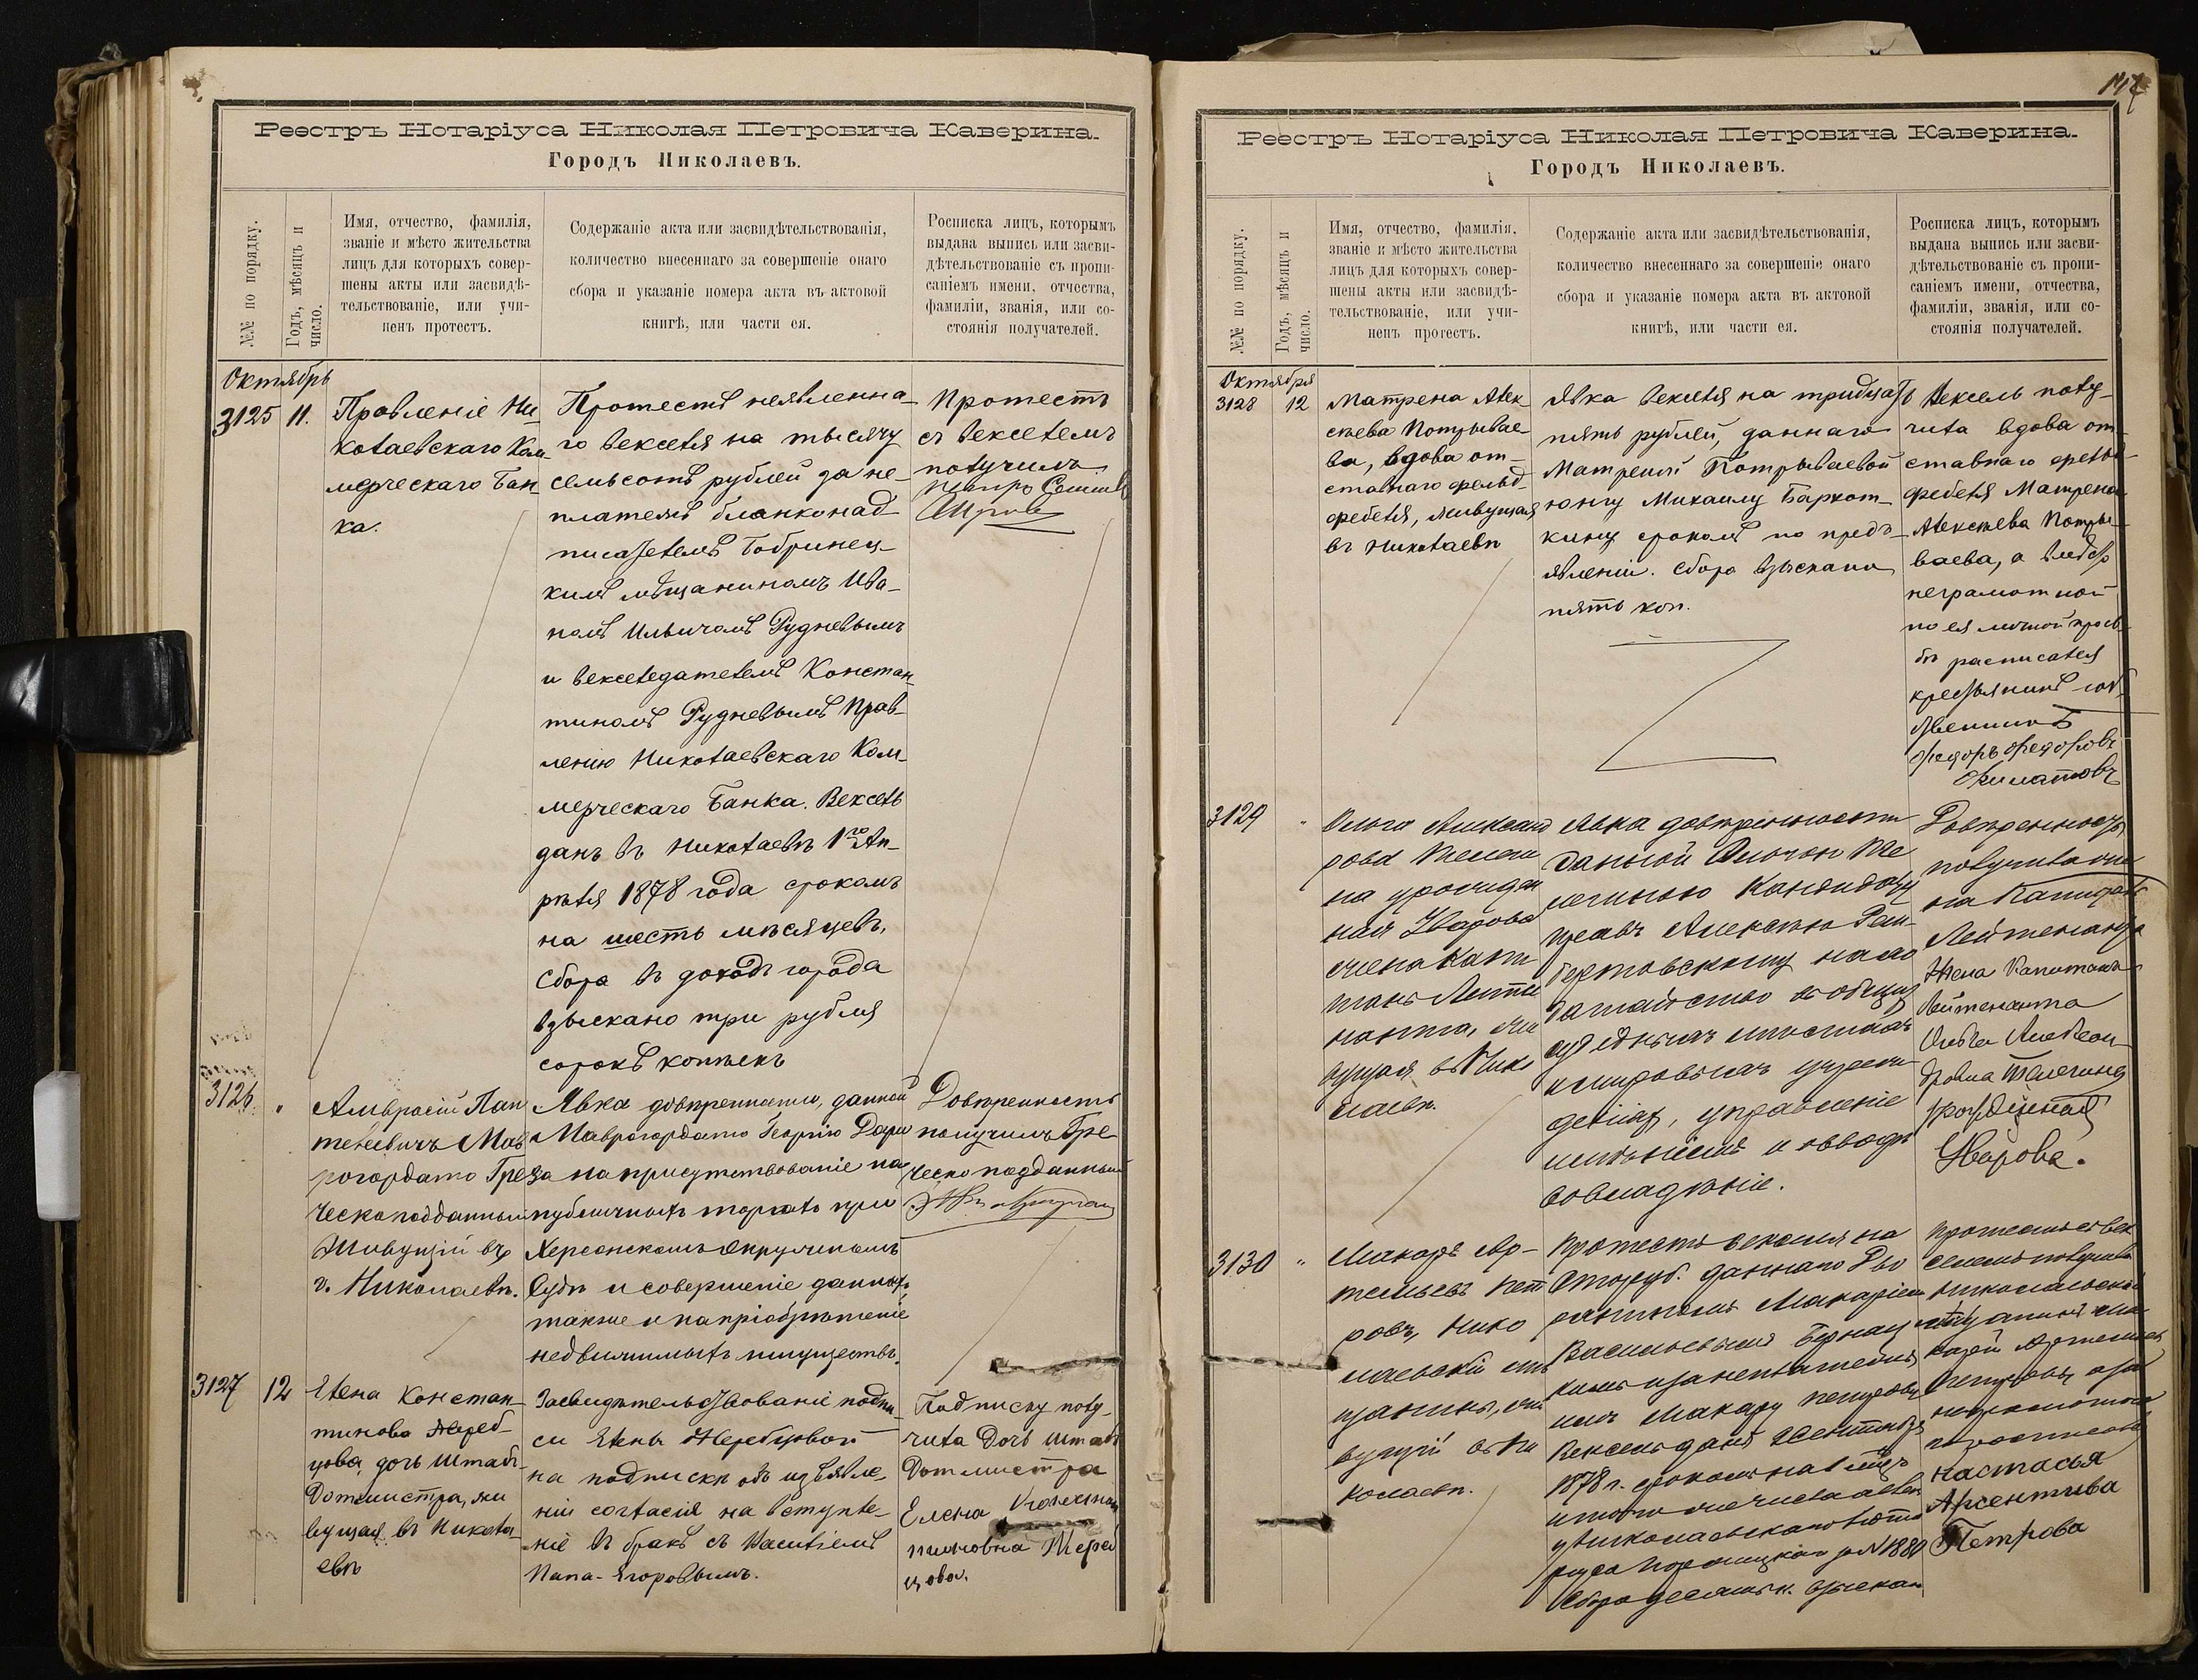 Реестръ Нотаріуса Николая Петровича Каверина.
Городъ Николаевъ.
№№ по порядку.
Годъ, мѣсяцъ и
число.
Имя, отчество, фамилія,
званіе и мѣсто жительства
лицъ для которыхъ совер-
шены акты или засвидѣ-
тельствованіе, или учи-
ненъ протестъ.
Содержаніе акта или засвидѣтельствованія,
количество внесеннаго за совершеніе онаго
сбора и указаніе номера акта въ актовой
книгѣ, или части ея.
Росписка лицъ, которымъ
выдана выпись или засви-
дѣтельствованіе съ пропи-
саніемъ имени, отчества,
фамиліи, званія, или со-
стоянія получателей.
Октябрь
3125 11.
Правленіе Ни-
колаевскаго Ком-
мерческаго Бан-
ка.
Протестъ неявленна-
го векселя на тысячу
семьсотъ рублей за не-
платежъ бланконад-
писателемъ Бобринец-
кимъ мѣщаниномъ Ива-
номъ Ильичомъ Рудневымъ
и векселедателемъ Констан-
тиномъ Рудневымъ Прав-
ленію Николаевскаго Ком-
мерческаго Банка. Вексель
данъ въ Николаевѣ 1го Ап-
рѣля 1878 года срокомъ
на шесть мѣсяцевъ.
Сбора въ доходъ города
взыскано три рубля
сорокъ копѣекъ
Протестъ
съ векселемъ
получилъ
3126. "
Амвросій Пан
телѣевичъ Мав
рогордато Гре
ческоподданный
Живущій въ
г. Николаевѣ.
Явка довѣренности, данной
Маврогордато Георгію Дари
за на присутствованіе на
публичныхъ торгахъ при
Херсонскомъ Окружномъ
Судѣ и совершеніе данныхъ,
также и на пріобрѣтеніе
недвижимыхъ имуществъ.
Довѣренность
получилъ Гре-
ческо подданный
3127 12
Елена Констан-
тинова Жереб-
цова, дочь Штабъ-
Ротмистра, жи
вущая въ Никола
евѣ
Засвидѣтельствованіе подпи-
си Елены Жеребцовой
на подпискѣ объ изъявле-
ніи согласія на вступле-
ніе въ бракъ съ Василіемъ
Папа-Егоровымъ.
Подписку полу-
чила Дочь Штабъ
Ротмистра
Елена Констан
тиновна Жереб
цова.
Реестръ Нотаріуса Николая Петровича Каверина.
Городъ Николаевъ.
№№ по порядку.
Годъ, мѣсяцъ и
число.
Имя, отчество, фамилія,
званіе и мѣсто жительства
лицъ для которыхъ совер-
шены акты или засвидѣ-
тельствованіе, или учи-
ненъ протестъ.
Содержаніе акта или засвидѣтельствованія,
количество внесеннаго за совершеніе онаго
сбора и указаніе номера акта въ актовой
книгѣ, или части ея.
Росписка лицъ, которымъ
выдана выпись или засви-
дѣтельствованіе съ пропи-
саніемъ имени, отчества,
фамиліи, званія, или со-
стоянія получателей.
Октября
3128 12
Матрена Алек-
сѣева Потрывае-
ва, вдова от-
ставнаго фельд-
фебеля, живущая
въ Николаевѣ
Явка векселя на тридцать
пять рублей, даннаго
Матреной Потрываевой
юнгу Михаилу Бархот-
кину срокомъ по предъ-
явленіи. Сбора взыскано
пять коп.
Вексель полу-
чила вдова от-
ставнаго фельд-
фебеля Матрена
Алексѣева Потры-
ваева, а вмѣсто
неграмотной
по ея личной прось-
бѣ расписался
крестьянинъ соб-
ственникъ
Федоръ Федоровъ
Филатовъ
3129 "
Ольга Александ
рова Телеги
на урожден
ная Уварова
жена Капи
танъ Лейте
нанта, жи
вущая въ Нико
лаевѣ.
Явка довѣренности
данной Ольгою Те
легиною Кандидату
правъ Алексѣю
на хо
датайство въ общихъ
судебныхъ мѣстахъ
и мировыхъ учреж
деніяхъ, управленіе
имѣніемъ и вводъ
во владѣніе.
Довѣренность
получила
Лейтенанта
Жена Капитанъ
Лейтенанта
Ольга Алексан
дровна Телегина
урожденная
Уварова.
3130 "
Макаръ Ар-
темьевъ Пет
ровъ, Нико
лаевскій мѣ
щанинъ, жи
вущій въ Ни
колаевѣ.
Протестъ векселя на
сто руб. даннаго Дво
ряниномъ Макаріемъ
Васильевымъ
кимъ за неплатежъ
имъ Макару Петрову
Вексель данъ Сентября
1878 г. срокомъ на 1 мѣсяцъ
у Николаевскаго Нота
ріуса за № 1880
Сбора десять к. взыскан
Протестъ съ век
селемъ получилъ
Николаевскій
мѣщанинъ Ма
каръ Артемьевъ
Петровъ, а за
неграмотнаго
расписалась
Настасья
Арсентива
Петрова